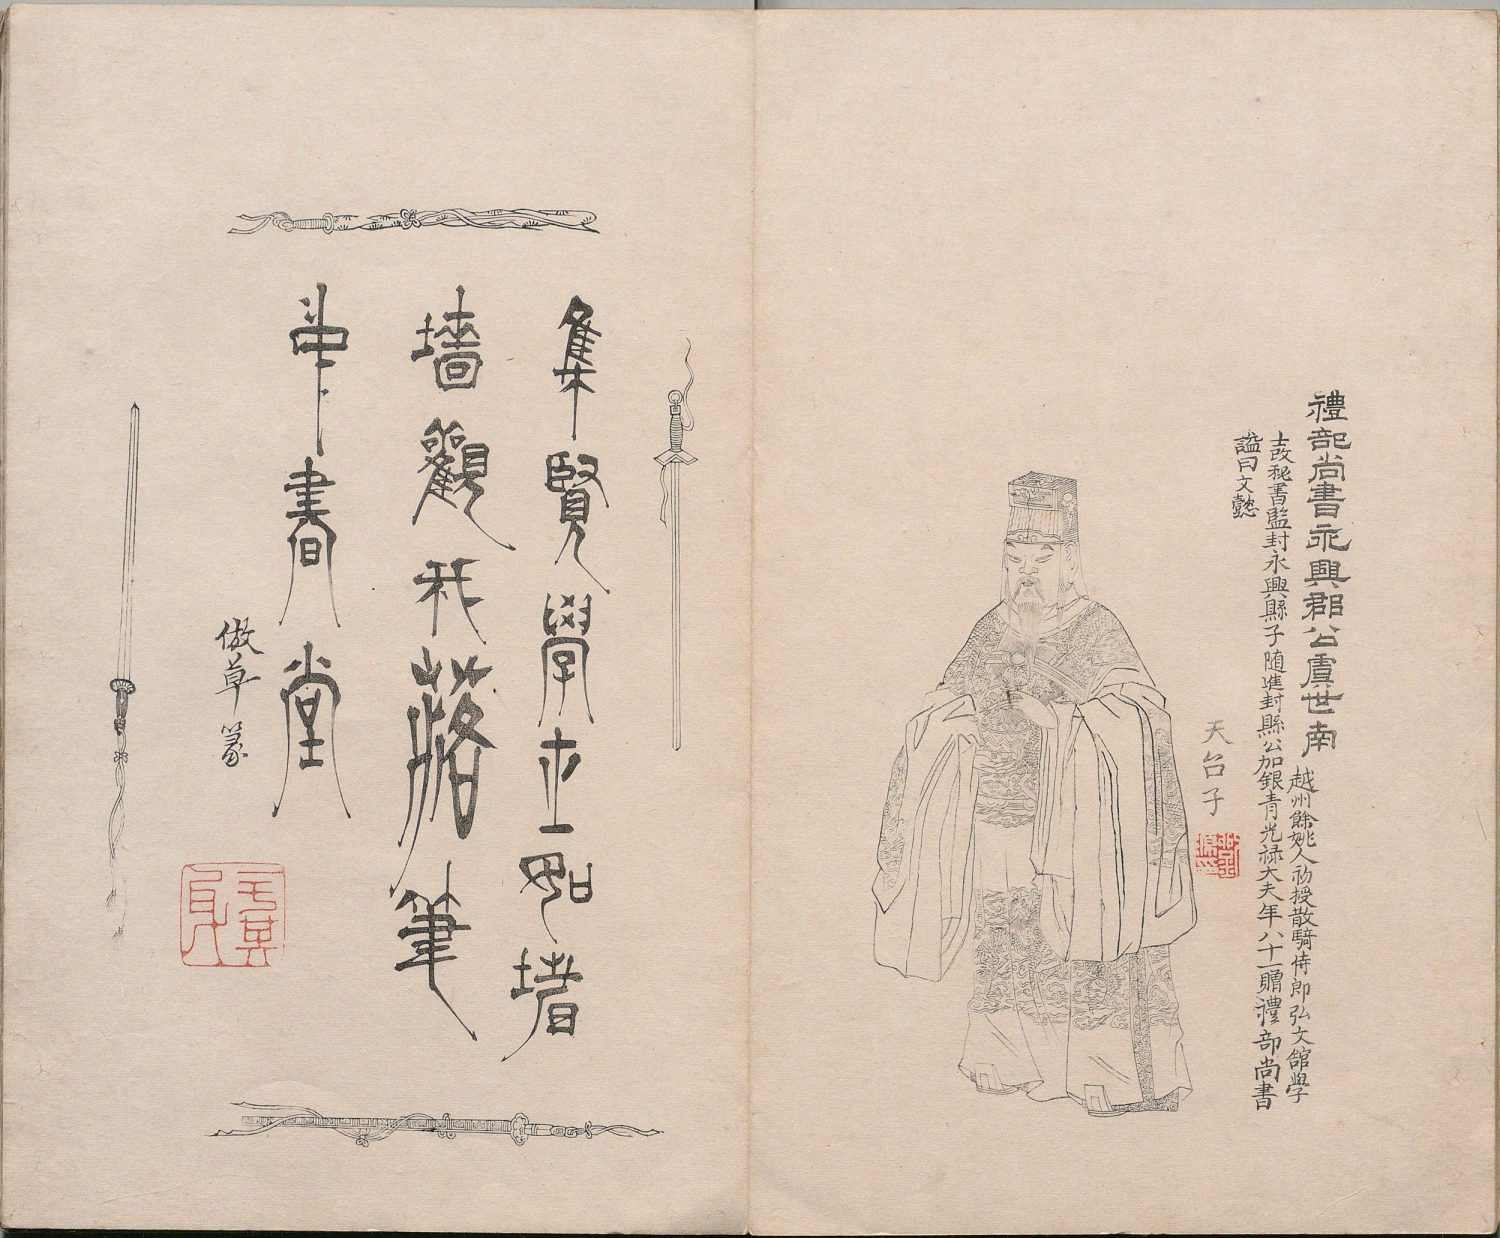 禮部尚書永興郡公虞世南
越州餘姚人初授散騎侍郎弘文舘學
士改秘書監封永興縣子随進封縣公加銀青光禄大夫年八十一贈禮部尚書
謚曰文懿
天台子
集賢學士如堵
墻觀我落筆
中書堂
倣草篆